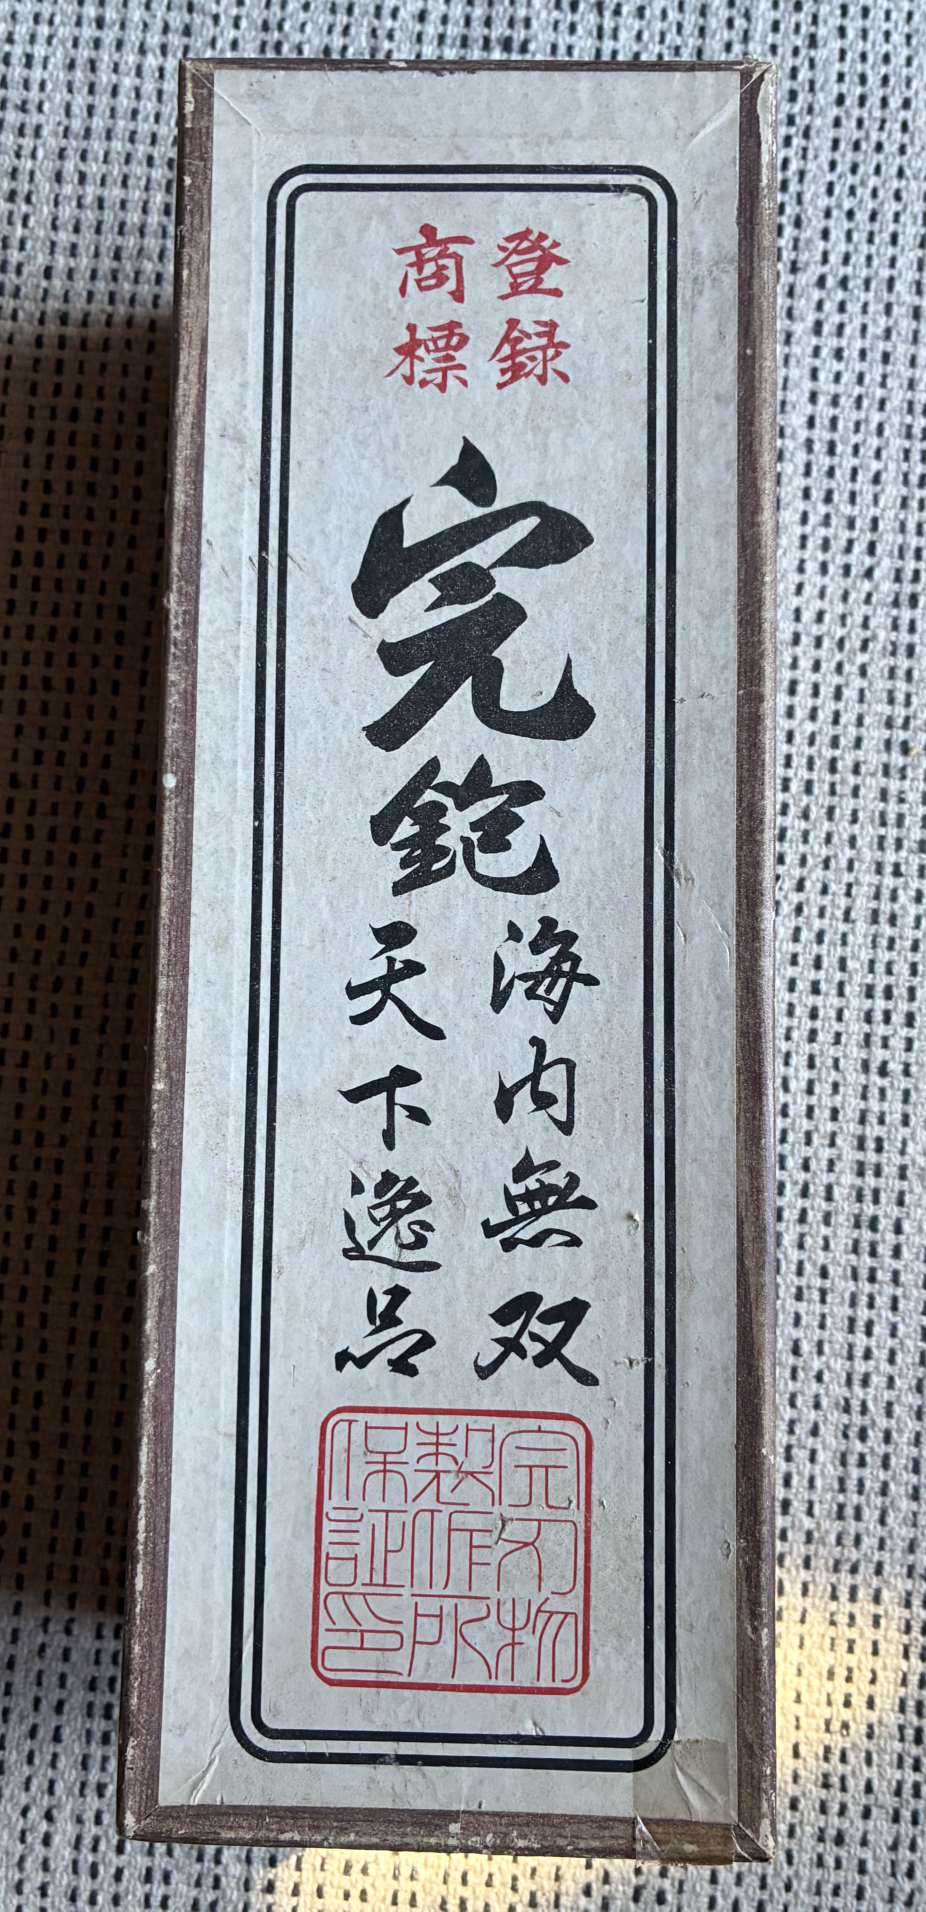 登録
商標
完
鉋
海内無双
天下逸品
完刃物
製作所
保証印